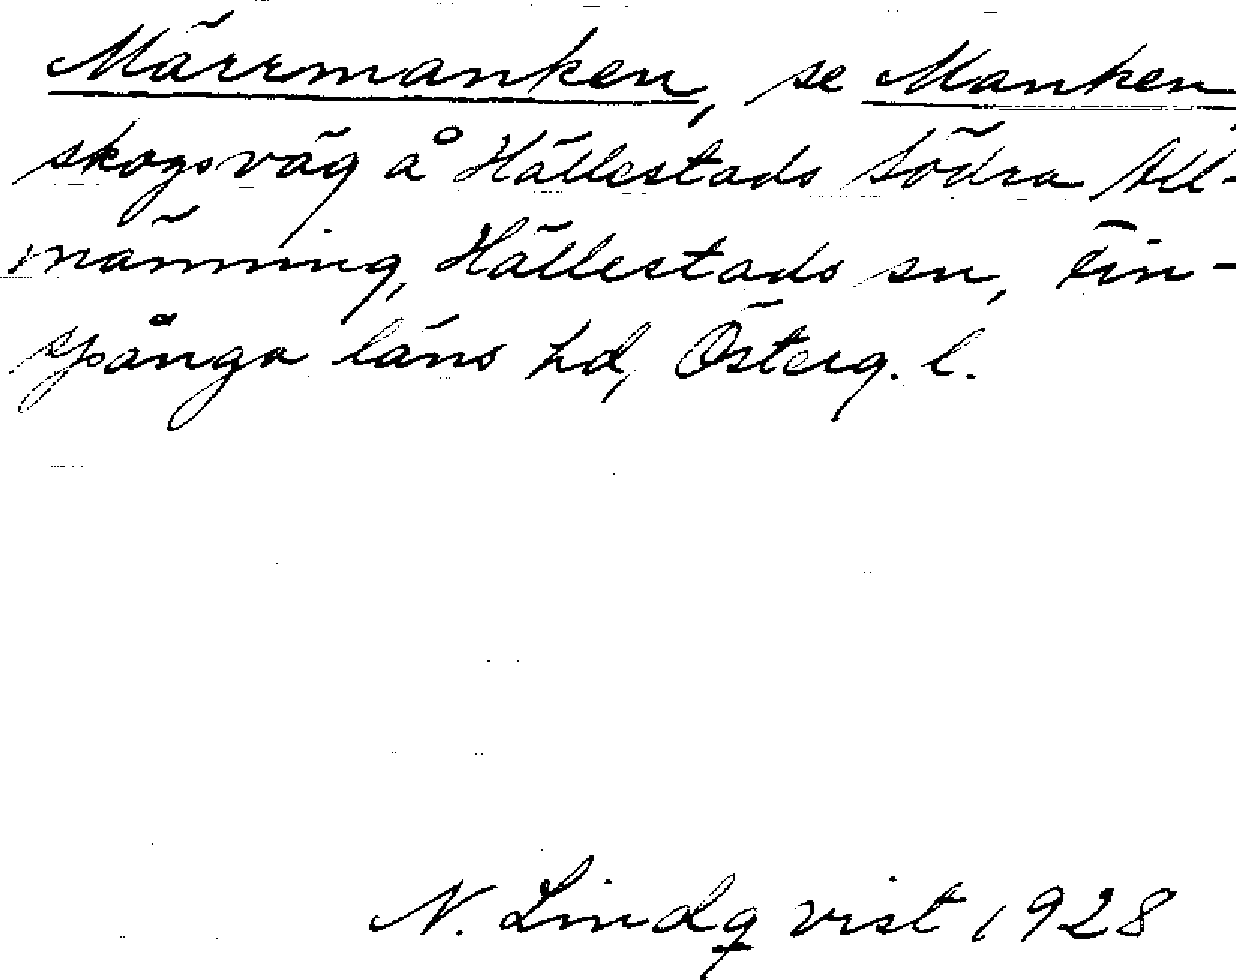 Märrmanken, se Manken,
skogsväg å Hällestads södra All-
männing, Hällestads sn, Fin-
spånga läns hd, Österg. l.
N. Lindqvist 1928